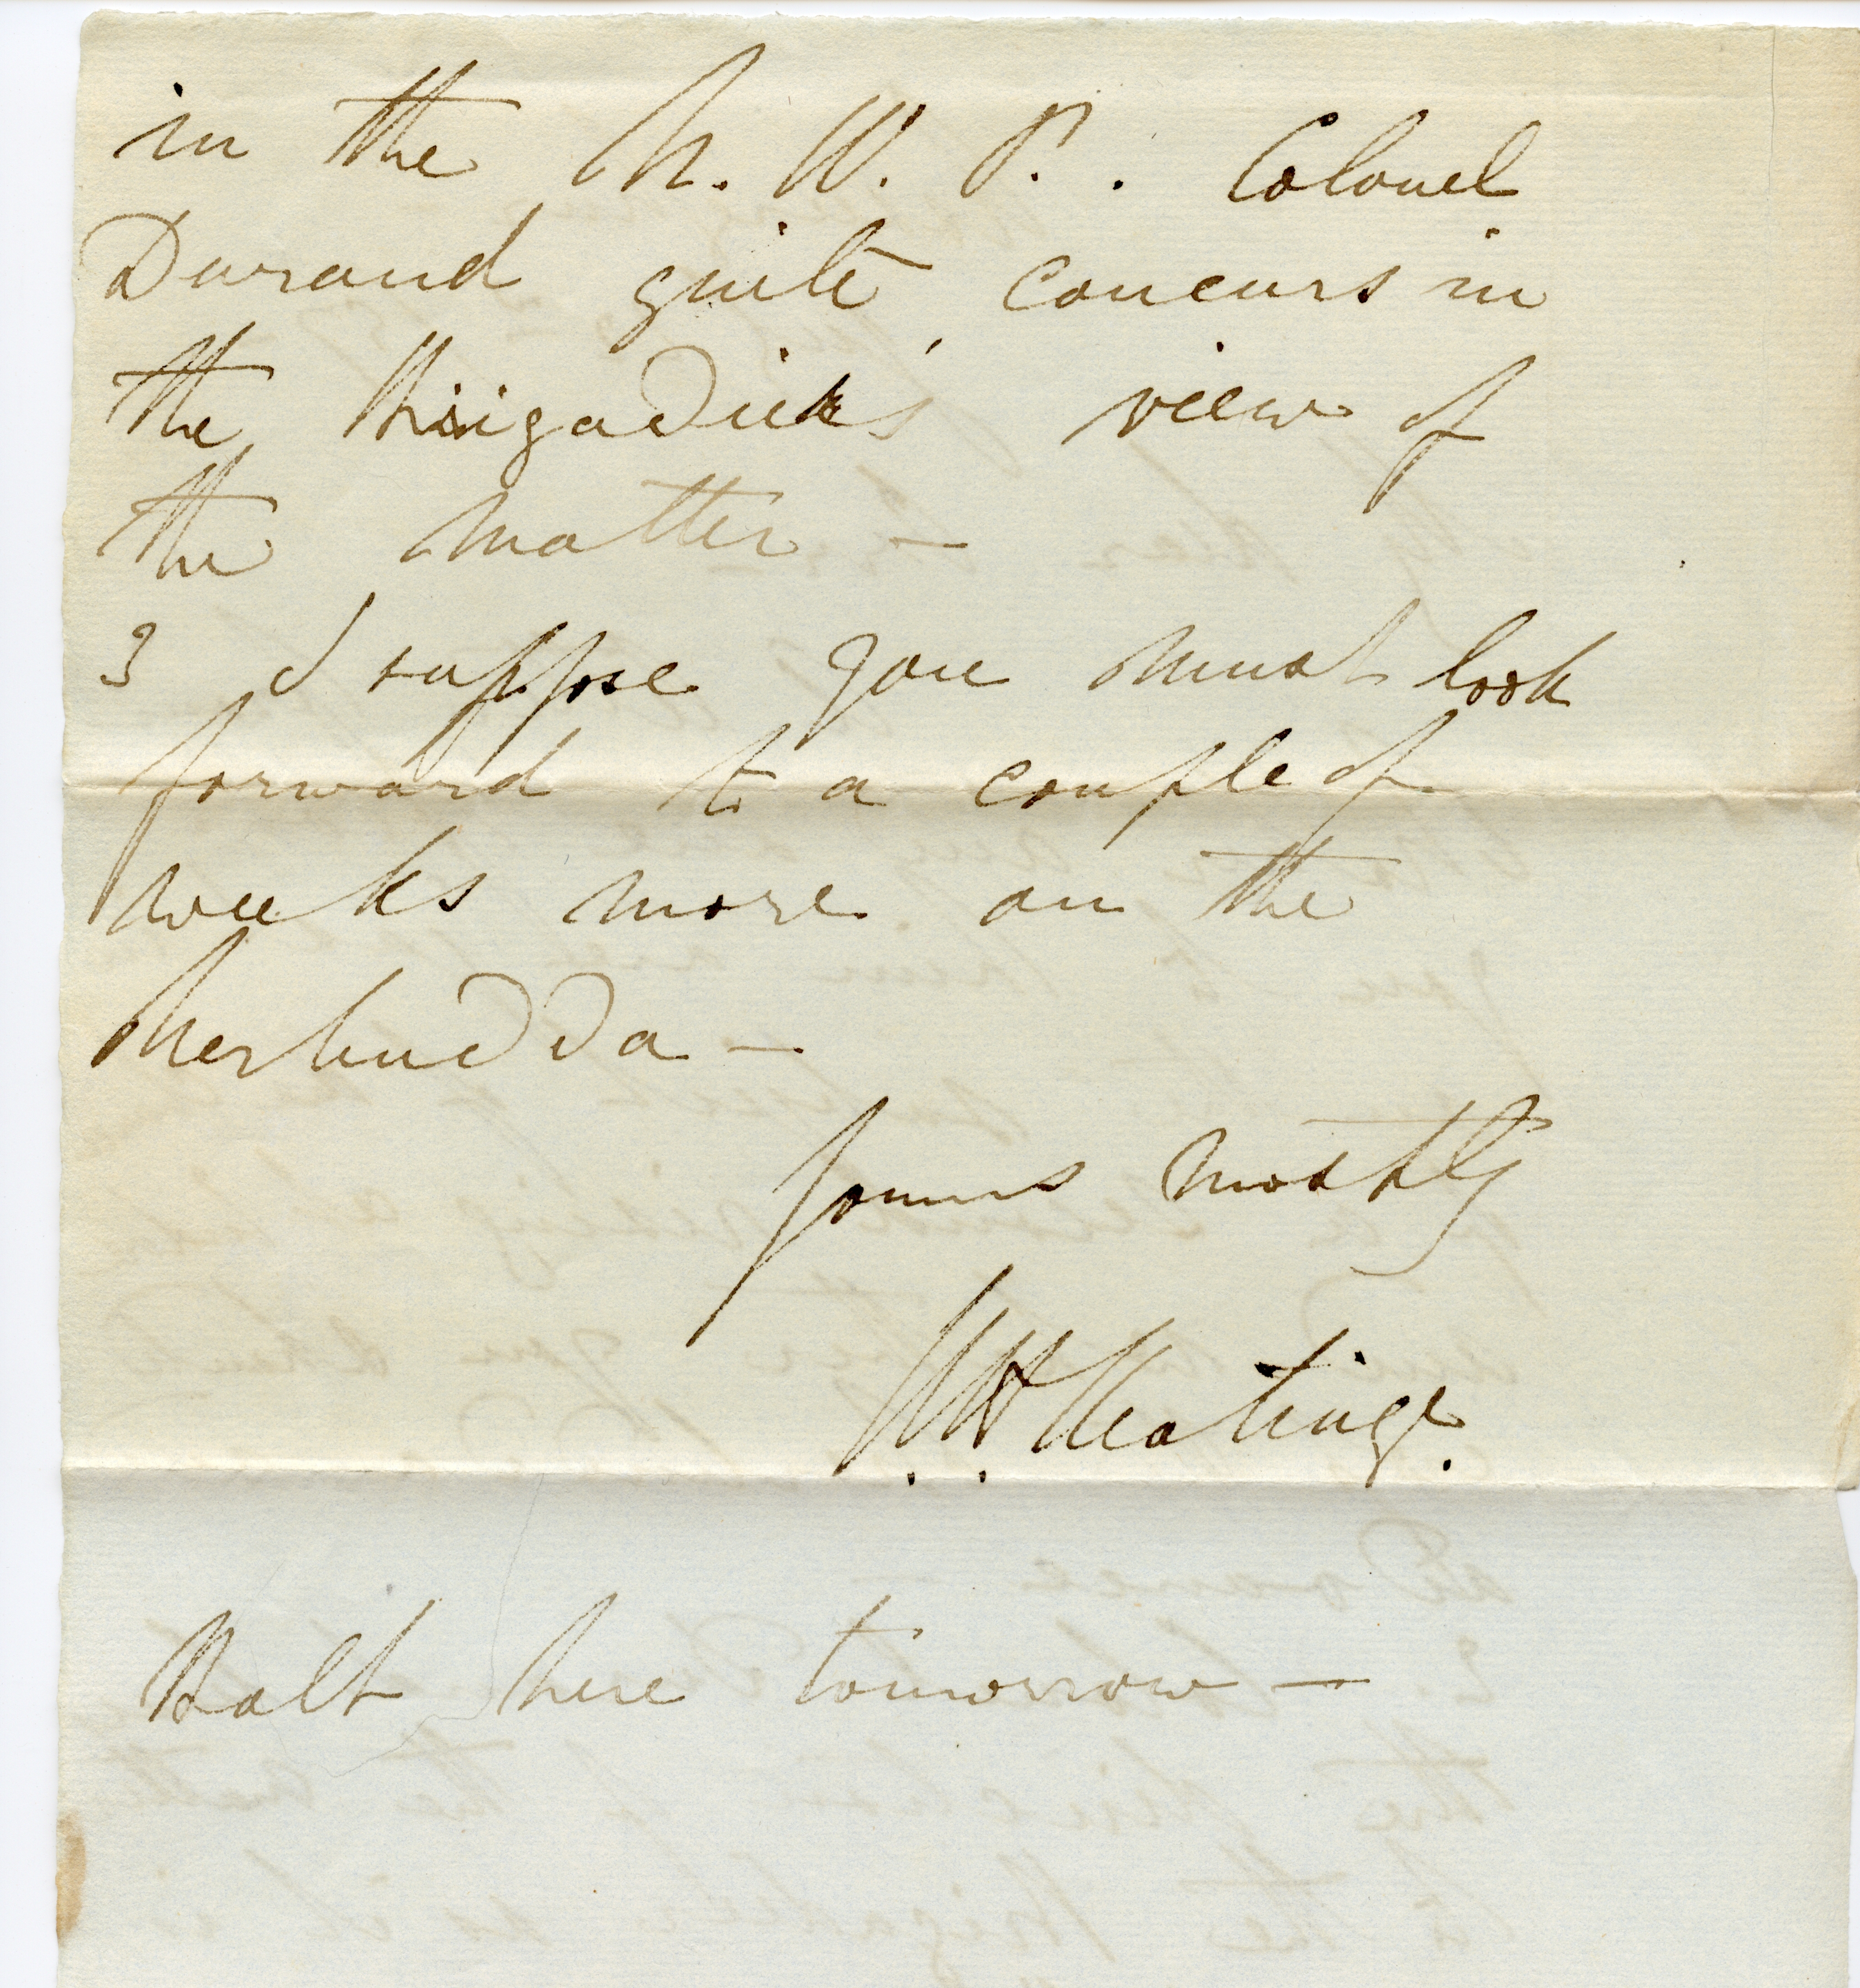 in the N. W. P. . Colonel
Durand quite concurs in
the Brigadier's view of
the matter —
3 I suppose you must look
forward to a couple of
weeks more on the
Nerbudda —
Yours mostly
R H Keatinge.
Halt here tomorrow —